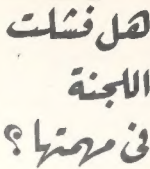 هل فشلت
اللجنة
فى مهمتها ؟